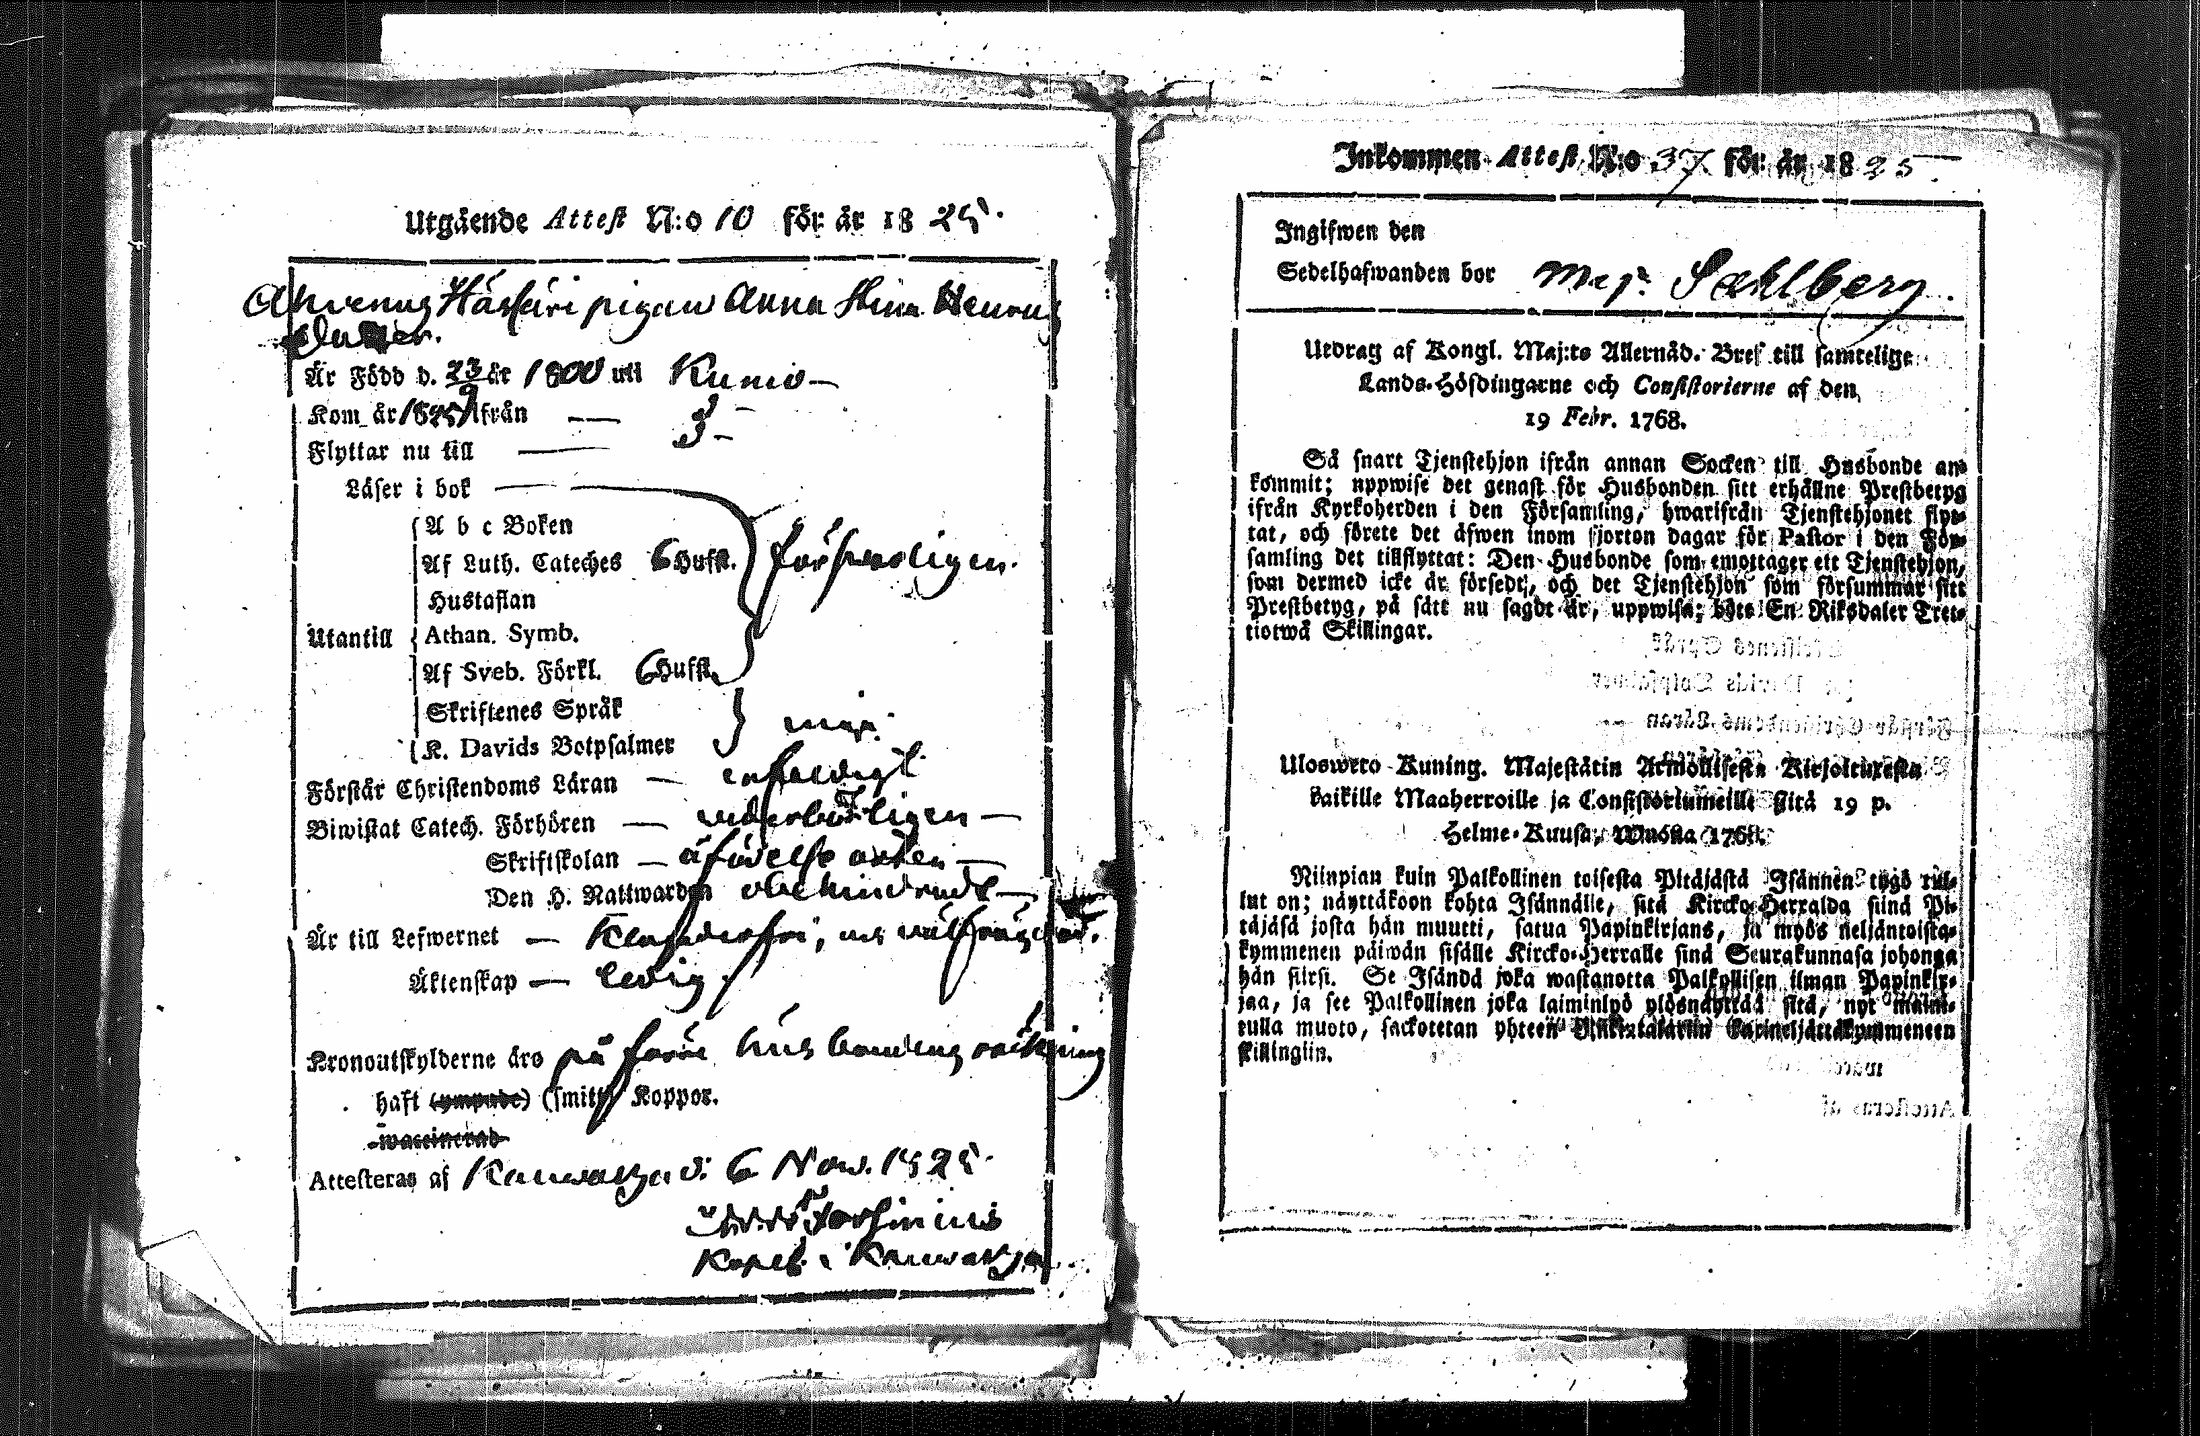 Utgående Attest N:o 10 för år 1825.
Ahvenus Häyhäri pigan Anna Stina Henrics
dotter.
Är Född d. 23/9 år 1800 uti Kumo
Kom år 1825 ifrån —
Flyttar nu till —
Läser i bok —
A b c Boken
Af Luth. Cateches 6 Hufst. försvarligen.
Hustaflan
Utantill Athan. Symb.
Af Sveb. Förkl. 6 Hufst.
Skriftenes Språk
K. Davids Botpsalmer
Förstår Christendoms Läran — enfaldigt.
Biwistat Catech. Förhören — vederbörligen —
Skriftskolan —
Den H. Nattwarden obehindradt —
Är till Lefwernet — och välfrägdad.
Äktenskap — ledig.
Kronoutskylderne äro på förre husbondens räkning
haft (ympade) (smitt) Koppor.
waccinerad
Attesteras af Kauwatza d. 6 Nov. 1825.
Kapel. i Kauwatza.
Inkommen Attest N:o 37 för år 1825
Ingifwen den
Sedelhafwanden bor Maj. Sahlberg.
Utdrag af Kongl. Maj:ts Allernåd. Bref till samtelige
Lands-Höfdingarne och Consistorierne af den
19 Febr. 1768.
Så snart Tjenstehjon ifrån annan Socken till Husbonde an-
kommit; uppwise det genast för Husbonden sitt erhållne Prestbetyg
ifrån Kyrkoherden i den Församling, hwarifrån Tjenstehjonet flyt-
tat, och förete det äfwen inom fjorton dagar för Pastor i den För-
samling det tillflyttat: Den Husbonde som emottager ett Tjenstehjon,
som dermed icke är försedt, och det Tjenstehjon som försummar sitt
Prestbetyg, på sätt nu sagdt är, uppwisa; böte En Riksdaler Tret-
tiotwå Skillingar.
Uloswetto Kuning. Majestätin Armollisesta Kirjoituxesta
kaikille Maaherroille ja Consistoriumeille siitä 19 p.
Helme-Kuusa, Wuosta 1768.
Niinpian kuin Palkollinen toisesta Pitäjästä Isännen tygö tul-
lut on; näyttäköön kohta Isännälle, sitä Kircko-Herralda siinä Pi-
täjäsä josta hän muutti, saatua Papinkirjans, ja myös neljäntoista-
kymmenen päiwän sisälle Kircko-Herralle siinä Seurakunnasa johonga
hän siirsi. Se Isändä joka wastanotta Palkollisen ilman Papinkir-
jaa, ja see Palkollinen joka laiminlyö ylösnäyttää sitä, nyt maini-
tulla muoto, sackotetan yhteen Riikintalariin Caxineljättäkymmeneen
skillingiin.